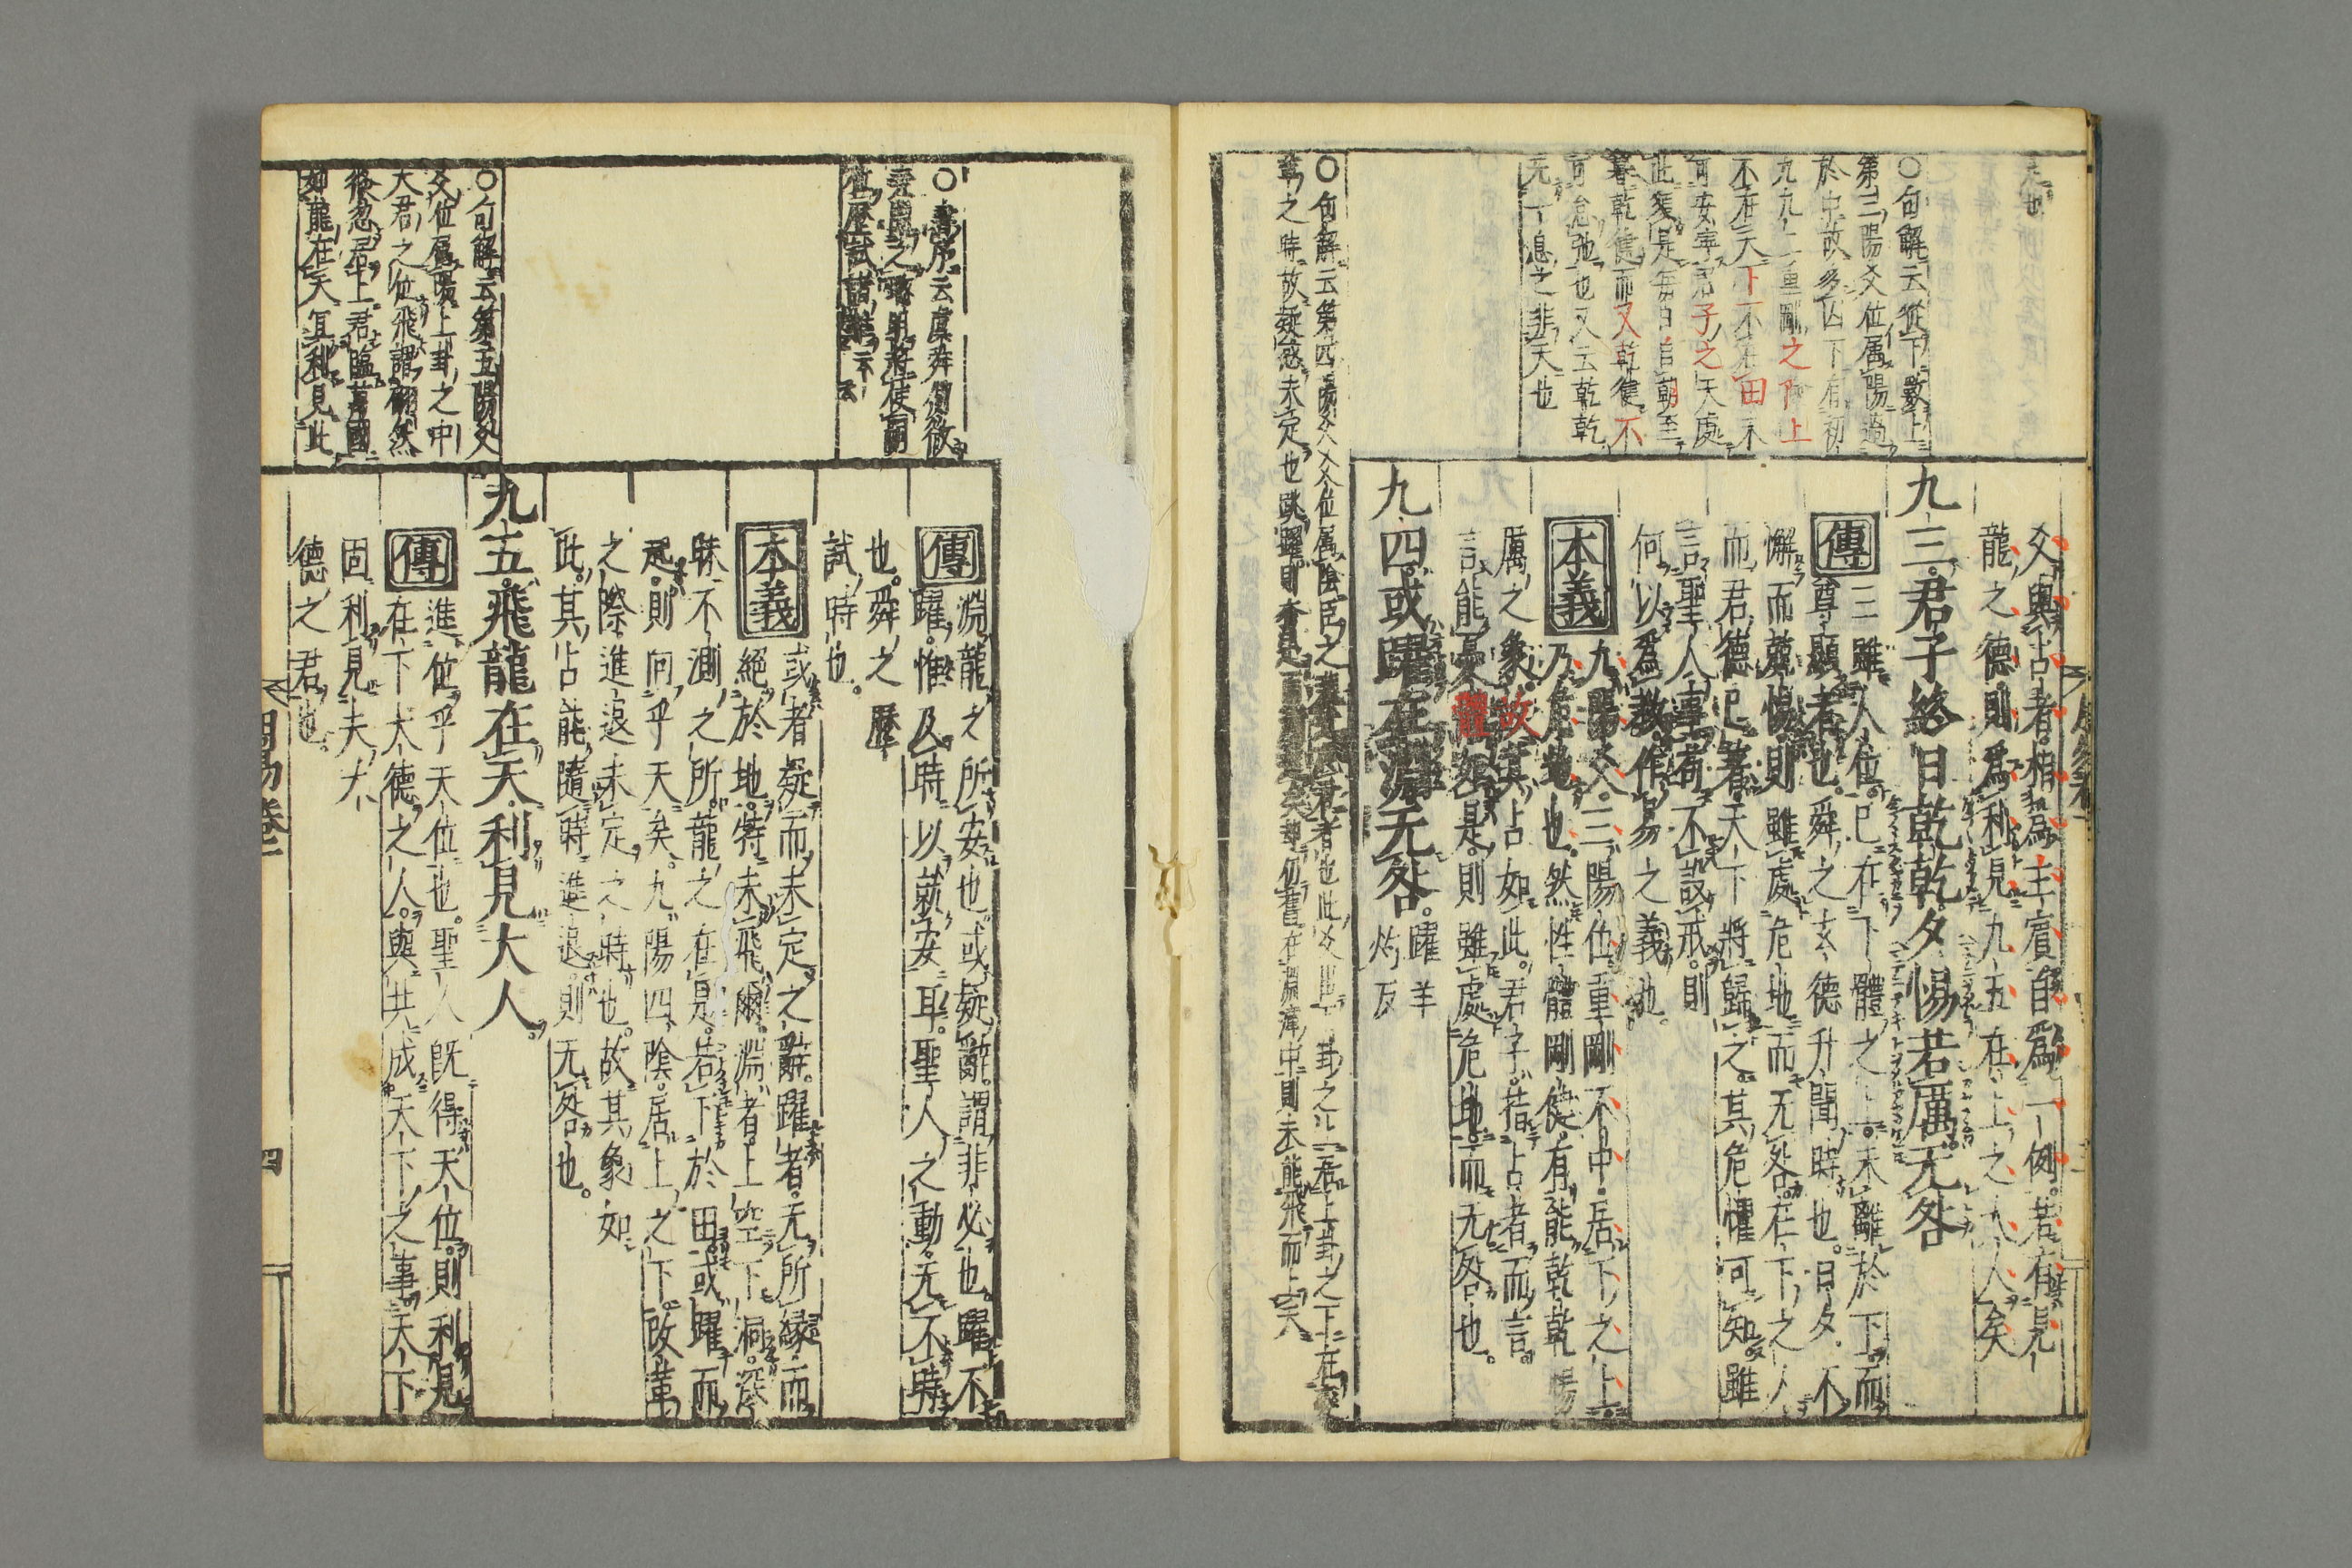 爻與占者相爲主賓自爲一例若有見
龍之德則爲利見九五在上之大人矣
九三君子終日乾乾夕惕若厲无咎
傳
三雖人位已在下體之上未離於下而
尊顯者也舜之玄德升聞時也日夕不
懈而兢惕則雖處危地而无咎在下之人
而君德已著天下將歸之其危懼可知雖
言聖人事苟不設戒則
何以爲教作易之義也
本義
九陽爻三陽位重剛不中居下之上
乃危地也然性體剛健有能乾乾惕
厲之象故其占如此君子指占者而言
言能憂懼如是則雖處危地而无咎也
九四或躍在淵无咎
躍羊
灼反
○句解云從下數上
第三陽爻位属陽過
於中故多凶下有初
九九二重剛之下上
不在天下不在田未
可安寧君子之天處
此爻是每日自朝至
暮乾健而又乾健不
可怠弛也又云乾乾
无一息之非天也
○句解云第四陽爻爻位属陰臣之
革之時故疑惑未定也跳躍則
仍舊在淵
中則未能飛而上天
傳
淵龍之所安也或疑辭謂非必也躍不
躍惟及時以就安耳聖人之動无不時
也舜之歷
試時也
本義
或者疑而未定之辭躍者无所緣而
絕於地特未飛爾淵者上空下洞深
昧不測之所龍之在是若下於田或躍而
起則向乎天矣九陽四陰居上之下改革
之際進退未定之時也故其象如
此其占能隨時進退則无咎也
九五飛龍在天利見大人
傳
進位乎天位也聖人既得天位則利見
在下大德之人與共成天下之事天下
固利見夫大
德之君也
○書序云虞舜側微
堯聞之聰明將使嗣
位歷試諸難云云
○句解云第五陽爻
爻位属陽上卦之中
大君之位飛謂翩然
倐忽居上君臨萬國
如龍在天冝利見此
周易卷一
四